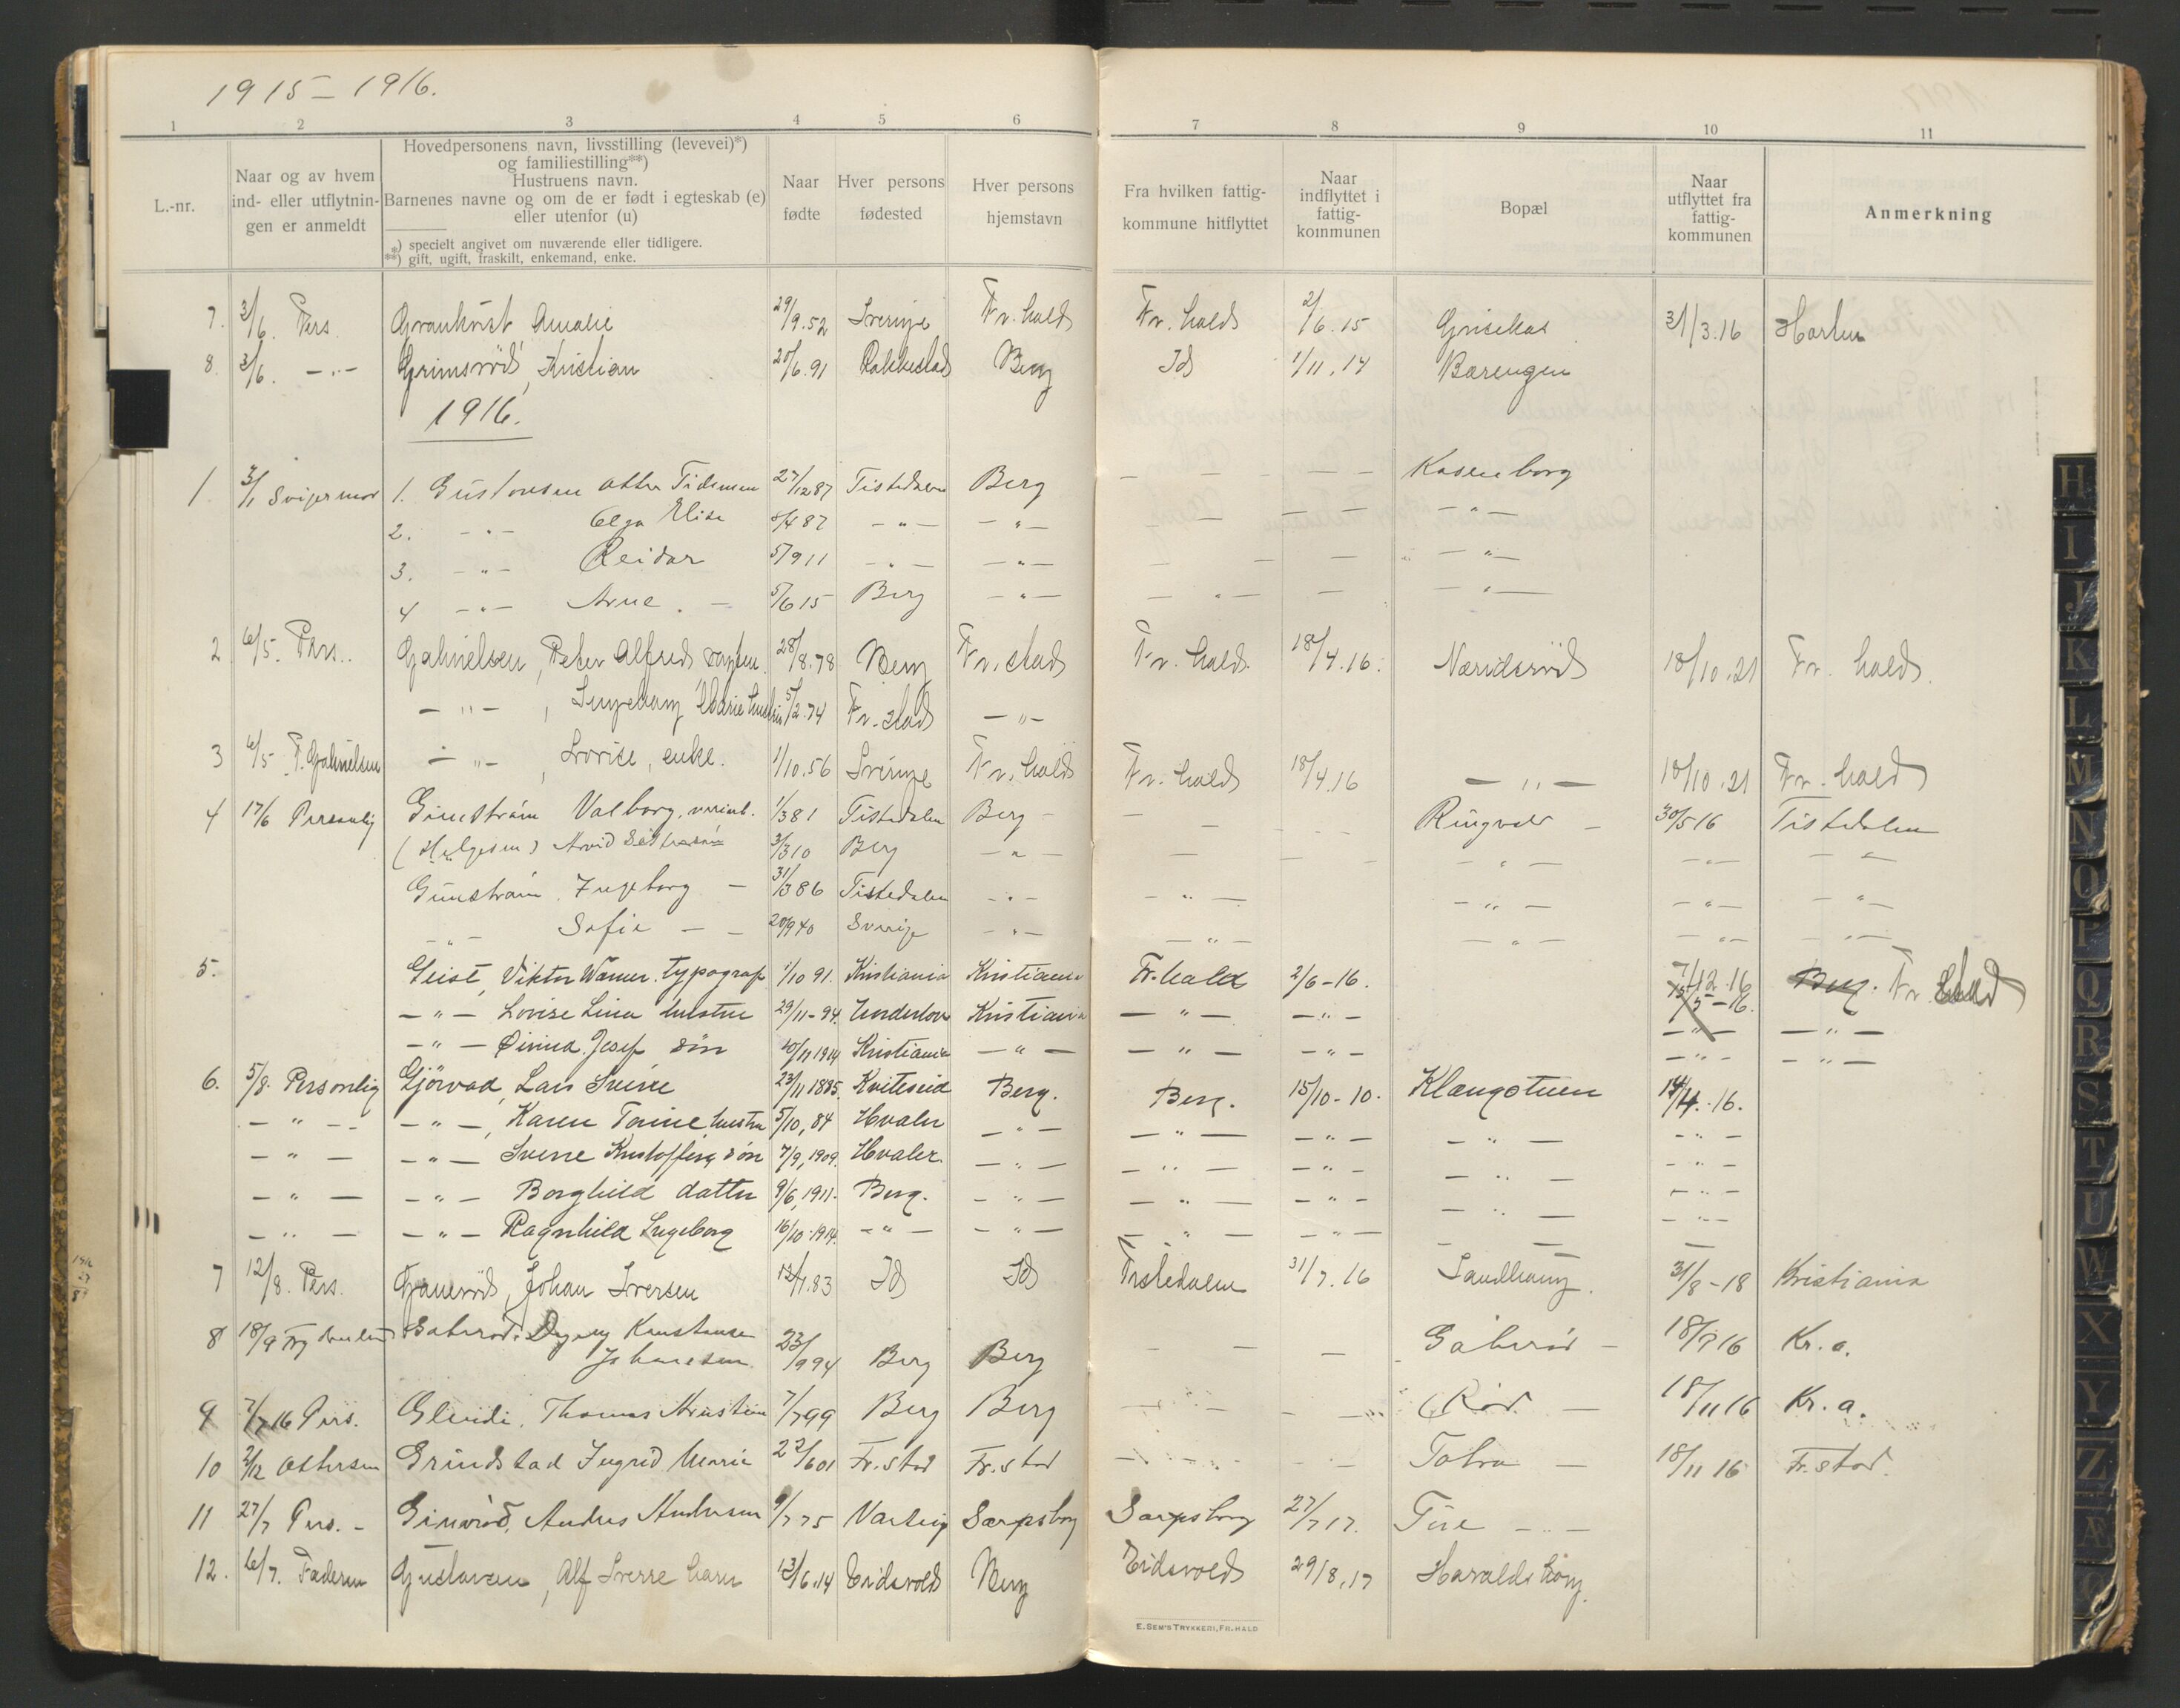 1915 – 1916.
1 2 3 4 5 6 7 8 9 10 11
L.-nr.
Naar og av hvem ind- eller utflytnin- gen er anmeldt
Hovedpersonens navn, livsstilling (levevei)*) og familiestilling**)
Hustruens navn.
Barnenes navne og om de er født i egteskab (e) eller utenfor (u)
*) specielt angivet om nuværende eller tidligere.
**) gift, ugift, fraskilt, enkemand, enke.
Naar fødte
Hver persons fødested
Hver persons hjemstavn
Fra hvilken fattig- kommune hitflyttet
Naar indflyttet i fattig- kommunen
Bopæl
Naar utflyttet fra fattig- kommunen
Anmerkning
7. 3/6. Pers. Grankvist Amalie 29/9.52 Sverige Fr.hald Fr.hald 2/6.15 31/3.16
8. 3/6. –"– Grimsröd, Kristian 20/6.91 Rakkestad Berg Id 1/11.14 Barengen
1916.
1 3/1 Svigermor 1. Gustavsen Tidemen 27/12 87 Tistedalen Berg – – – – Kasenborg
2. –"– Olga Elise 8/4 87 –"– –"– – – – – –"–
3. –"– Reidar 5/9 11 –"– –"– – – – –"–
4 –"– Arne. – 5/6 15 Berg –"– – "– – –"–
2 6/5. Pers.. Gabrielsen, Peter Alfred 28/8.78 Berg Fr.stad Fr. hald. 18/4.16. 18/10.21 Fr. hald.
–"–, Ingeborg Marie hustru 5/2.74 Fr.stad –"–
3 6/5 P. Gabrielsen –"–, Lovise, enke. 1/10.56 Sverige Fr.hald Fr.hald 18/4.16 –"– 18/10.21 Fr.hald
4 17/6 Personlig Ginström Valborg, 1/3 81 Tistedalen Berg – – – Ringvold – 30/5 16 Tistedalen
(Helgesen) Arvid 3/3 10 Berg –"– – – – –"– –"– –"–
Ginström Ingeborg – 31/3 86 Tistedalen –"– –"– –"– –"– –"–
–"– Sofie – – 20/9 40 Sverige –"– –"– –"– –"– –"–
5. Geist, Viktor Werner. typograf 1/10 91. Kristiania Kristiania Fr.hald 2/6-16. 7/12.16 15/5-16. Berg. Fr. hald
–"– Lovise Lina hustru 29/11-94. Kristiania –"– –"– –"– –"–
–"– Josef søn 20/11 1914 Kristiania –"– –"– –"– –"– –"–
6. 5/8. Personlig Gjörvad, Lars Sverre 23/11 1885. Kviteseid Berg. Berg. 15/10-10. Klangstuen 14/4.-16.
–"– –"–, Karen Tomine hustru 5/10, 84 Hvaler –"– –"– –"– –"– –"–
–"– –"– Sverre søn 7/9, 1909. Hvaler. –"– –"– –"– –"– –"–
–"– –"– Borghild datter 9/6, 1911. Berg. –"– –"– –"– –"– –"–
–"– –"– Ragnhild Ingeborg 16/10-1914. –"– –"– –"– –"– – – –
7 12/8. Pers. Johan Iversen 12/1.83 Id Id Tistedalen 31/7.16 Sandhaug. 31/8-18 Kristiania
8 18/9 Gaberöd. Dagny Konstanse
Johansen. 23/9 94 Berg Berg – – – Gaberöd – 18/9 16 Kr.a.
9 7/7 16 Pers. Glende, Thomas Kristian 7/7 99 Berg Berg – – – – Röd – 18/11 16 Kr.a.
10 2/12 Ottersen Grindstad Ingrid Marie 22/6 01 Fr.stad Fr.stad – – – – – 18/11 16 Fr.stad.
11 27/7 Pers. – Ginröd, Andreas Andersen 9/7 75 Varteig Sarpsborg Sarpsborg 27/7 17. –"–
12. 6/7. Faderen Gustavsen, Alf Sverre barn 13/6.14 Eidsvold Berg Eidsvold 29/8.17 Haraldshaug.
E. SEM'S TRYKKERI, FR.HALD
H
I
J
K
L
M
N
O
P
Q
R
S
T
U
W
X
Y
Z
Æ
Ø